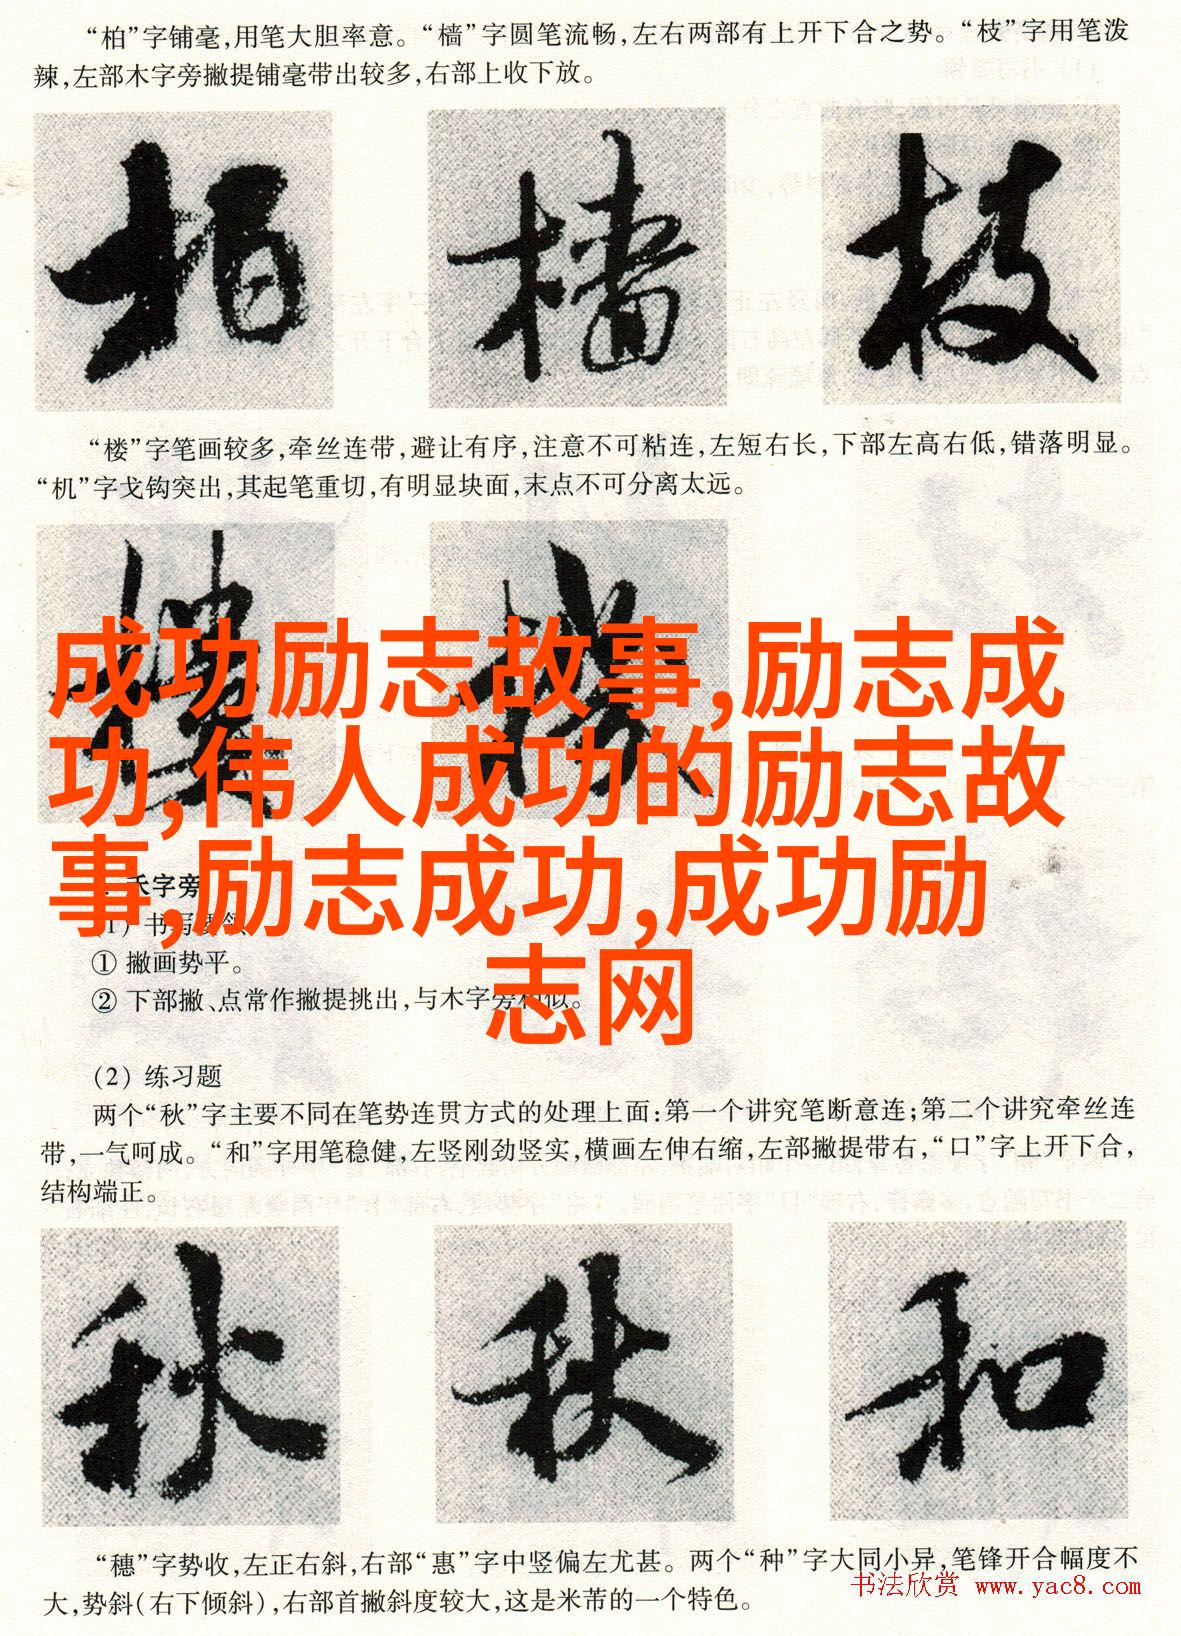 “柏”字铺毫,用笔大胆率意。“樯”字圆笔流畅,左右两部有上开下合之势。“枝”字用笔泼
辣,左部木字旁撇提铺毫带出较多,右部上收下放。
柏 樯 枝
“楼”字笔画较多,牵丝连带,避让有序,注意不可粘连,左短右长,下部左高右低,错落明显。
“机”字戈钩突出,其起笔重切,有明显块面,末点不可分离太远。
成功励志故事,励志成
功,伟人成功的励志故
事,励志成功,成功励
志网
禾字旁
(1) 书写要领
① 撇画势平。
② 下部撇、点常作撇提挑出,与木字旁相似。
(2) 练习题
两个“秋”字主要不同在笔势连贯方式的处理上面:第一个讲究笔断意连;第二个讲究牵丝连
带,一气呵成。“和”字用笔稳健,左竖刚劲竖实,横画左伸右缩,左部撇提带右,“口”字上开下合,
结构端正。
秋 秋 和
“穗”字势收,左正右斜,右部“惠”字中竖偏左尤甚。两个“种”字大同小异,笔锋开合幅度不
大,势斜(右下倾斜),右部首撇斜度较大,这是米芾的一个特色。
书法欣赏 www.yac8.com